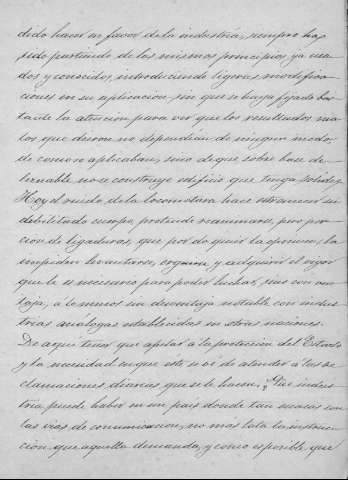 dido hacer en favor de la industria, siempre ha
sido partiendo de los mismos principios, ya usa-
dos y conocidos, introduciendo ligeras modifica-
ciones en su aplicacion, sin que se haya fijado bas-
tante la atencion para ver que los resultados ma-
los que dieron no dependian de ningun modo
de como se aplicaban, sino de que sobre base de-
leznable no se construye edificio que tenga solidez.
Hoy el ruido de la locomotora hace estremecer su
debilitado cuerpo, pretende reanimarse, pero por-
cion de ligaduras, que por do quier la oprimen, la
impiden levantarse, erguirse y adquirir el vigor
que le es necesario para poder luchar, sino con ven-
taja, á lo menos sin desventaja notable con indus-
trias análogas establecidas en otras naciones.
De aqui tener que apelar á la proteccion del Estado
y la necesidad en que este se vé de atender á las re-
clamaciones diarias que se le hacen. ¿Que indus-
tria puede haber en un pais donde tan escasas son
las vias de comunicacion, no está la instruc-
cion que aquella demanda, y como es posible que